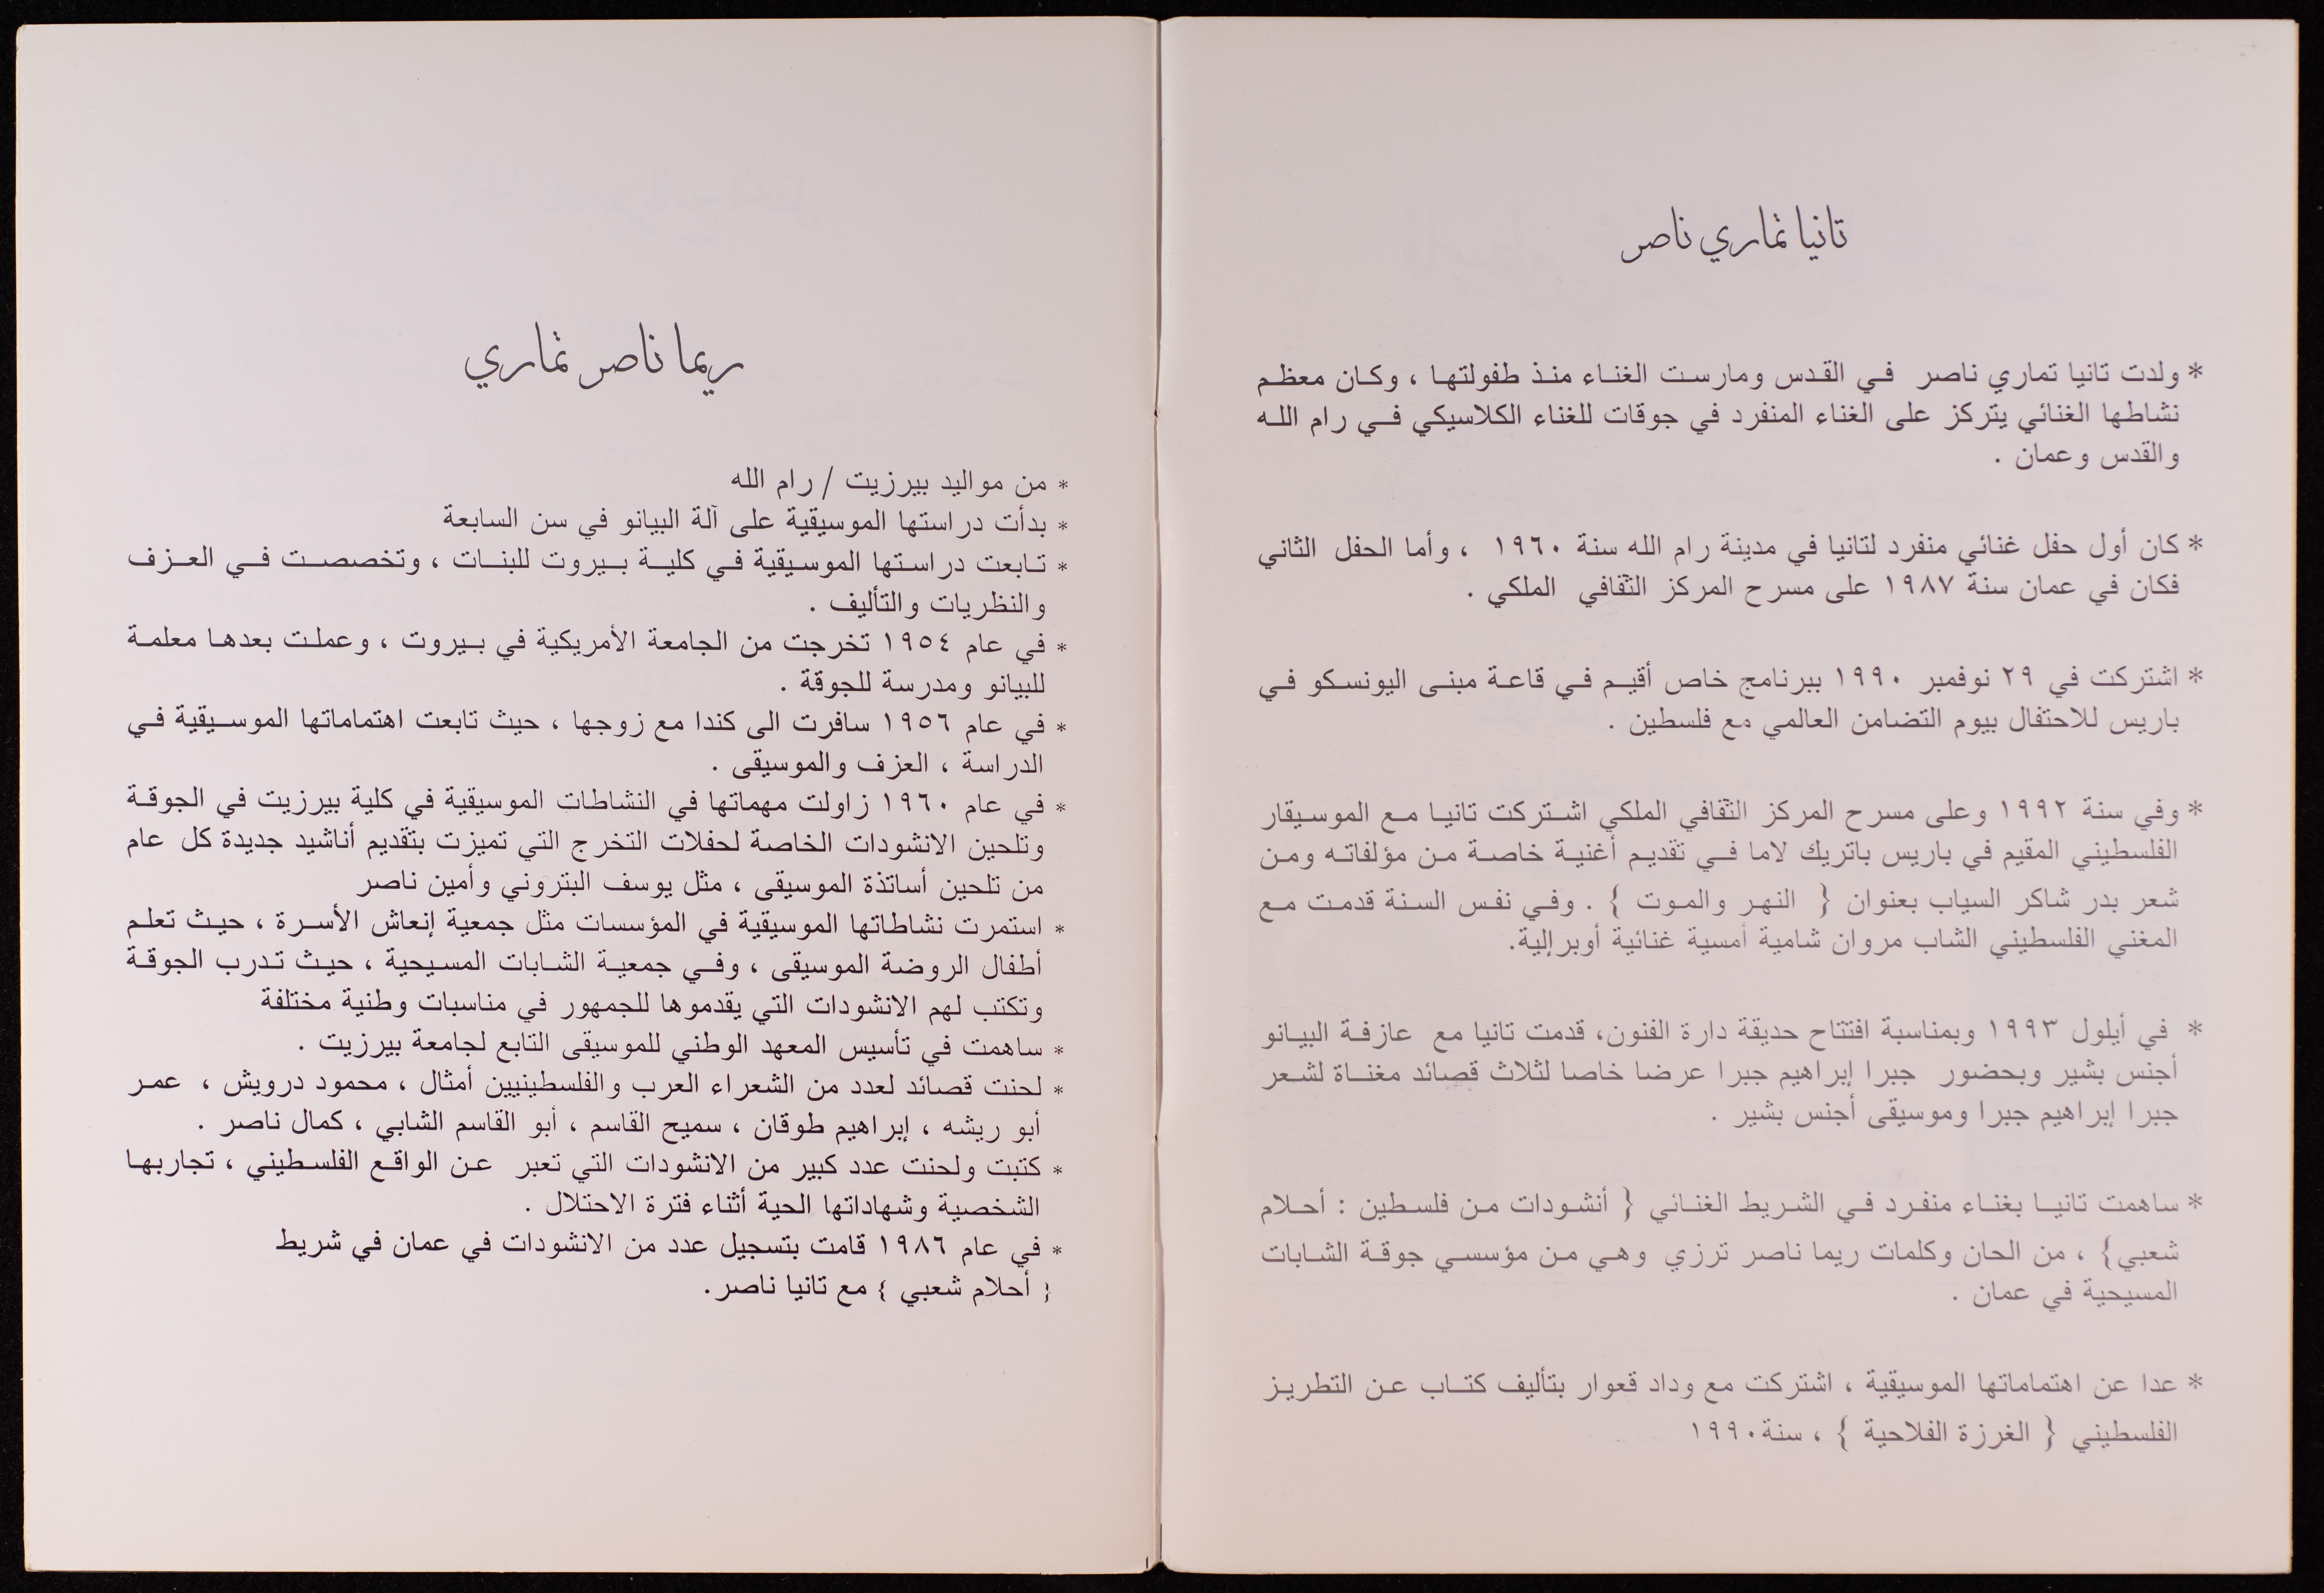 تانيا تماري ناصر
* ولدت تانيا تماري ناصر في القدس ومارست الغناء منذ طفولتها ، وكان معظم
نشاطها الغنائي يتركز على الغناء المنفرد في جوقات للغناء الكلاسيكي في رام الله
والقدس وعمان .
* كان أول حفل غنائي منفرد لتانيا في مدينة رام الله سنة ١٩٦٠ ، وأما الحفل الثاني
فكان في عمان سنة ١٩٨٧ على مسرح المركز الثقافي الملكي .
* اشتركت في ٢٩ نوفمبر ١٩٩٠ ببرنامج خاص أقيم في قاعة مبنى اليونسكو في
باريس للاحتفال بيوم التضامن العالمي مع فلسطين .
* وفي سنة ١٩٩٢ وعلى مسرح المركز الثقافي الملكي اشتركت تانيا مع الموسيقار
الفلسطيني المقيم في باريس باتريك لاما في تقديم أغنية خاصة من مؤلفاته ومن
شعر بدر شاكر السياب بعنوان { النهر والموت } . وفي نفس السنة قدمت مع
المغني الفلسطيني الشاب مروان شامية أمسية غنائية أوبرالية.
* في أيلول ١٩٩٣ وبمناسبة افتتاح حديقة دارة الفنون، قدمت تانيا مع عازفة البيانو
أجنس بشير وبحضور جبرا إبراهيم جبرا عرضا خاصا لثلاث قصائد مغناة لشعر
جبرا إبراهيم جبرا وموسيقى أجنس بشير .
* ساهمت تانيا بغناء منفرد في الشريط الغنائي { أنشودات من فلسطين : أحلام
شعبي} ، من الحان وكلمات ريما ناصر ترزي وهي من مؤسسي جوقة الشابات
المسيحية في عمان .
* عدا عن اهتماماتها الموسيقية ، اشتركت مع وداد قعوار بتأليف كتاب عن التطريز
الفلسطيني { الغرزة الفلاحية } ، سنة١٩٩٠
ريما ناصر تماري
* من مواليد بيرزيت / رام الله
* بدأت دراستها الموسيقية على آلة البيانو في سن السابعة
* تابعت دراستها الموسيقية في كلية بيروت للبنات ، وتخصصت في العزف
والنظريات والتأليف .
* في عام ١٩٥٤ تخرجت من الجامعة الأمريكية في بيروت ، وعملت بعدها معلمة
للبيانو ومدرسة للجوقة .
* في عام ١٩٥٦ سافرت الى كندا مع زوجها ، حيث تابعت اهتماماتها الموسيقية في
الدراسة ، العزف والموسيقى .
* في عام ١٩٦٠ زاولت مهماتها في النشاطات الموسيقية في كلية بيرزيت في الجوقة
وتلحين الانشودات الخاصة لحفلات التخرج التي تميزت بتقديم أناشيد جديدة كل عام
من تلحين أساتذة الموسيقى ، مثل يوسف البتروني وأمين ناصر
* استمرت نشاطاتها الموسيقية في المؤسسات مثل جمعية إنعاش الأسرة ، حيث تعلم
أطفال الروضة الموسيقى ، وفي جمعية الشابات المسيحية ، حيث تدرب الجوقة
وتكتب لهم الانشودات التي يقدموها للجمهور في مناسبات وطنية مختلفة
* ساهمت في تأسيس المعهد الوطني للموسيقى التابع لجامعة بيرزيت .
* لحنت قصائد لعدد من الشعراء العرب والفلسطينيين أمثال ، محمود درويش ، عمر
أبو ريشه ، إبراهيم طوقان ، سميح القاسم ، أبو القاسم الشابي ، كمال ناصر .
* كتبت ولحنت عدد كبير من الانشودات التي تعبر عن الواقع الفلسطيني ، تجاربها
الشخصية وشهاداتها الحية أثناء فترة الاحتلال .
* في عام ١٩٨٦ قامت بتسجيل عدد من الانشودات في عمان في شريط
{ أحلام شعبي } مع تانيا ناصر.